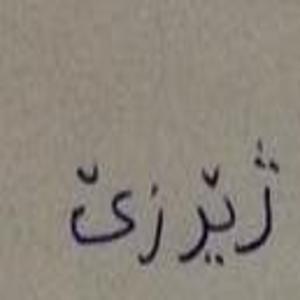 ژێرزێ